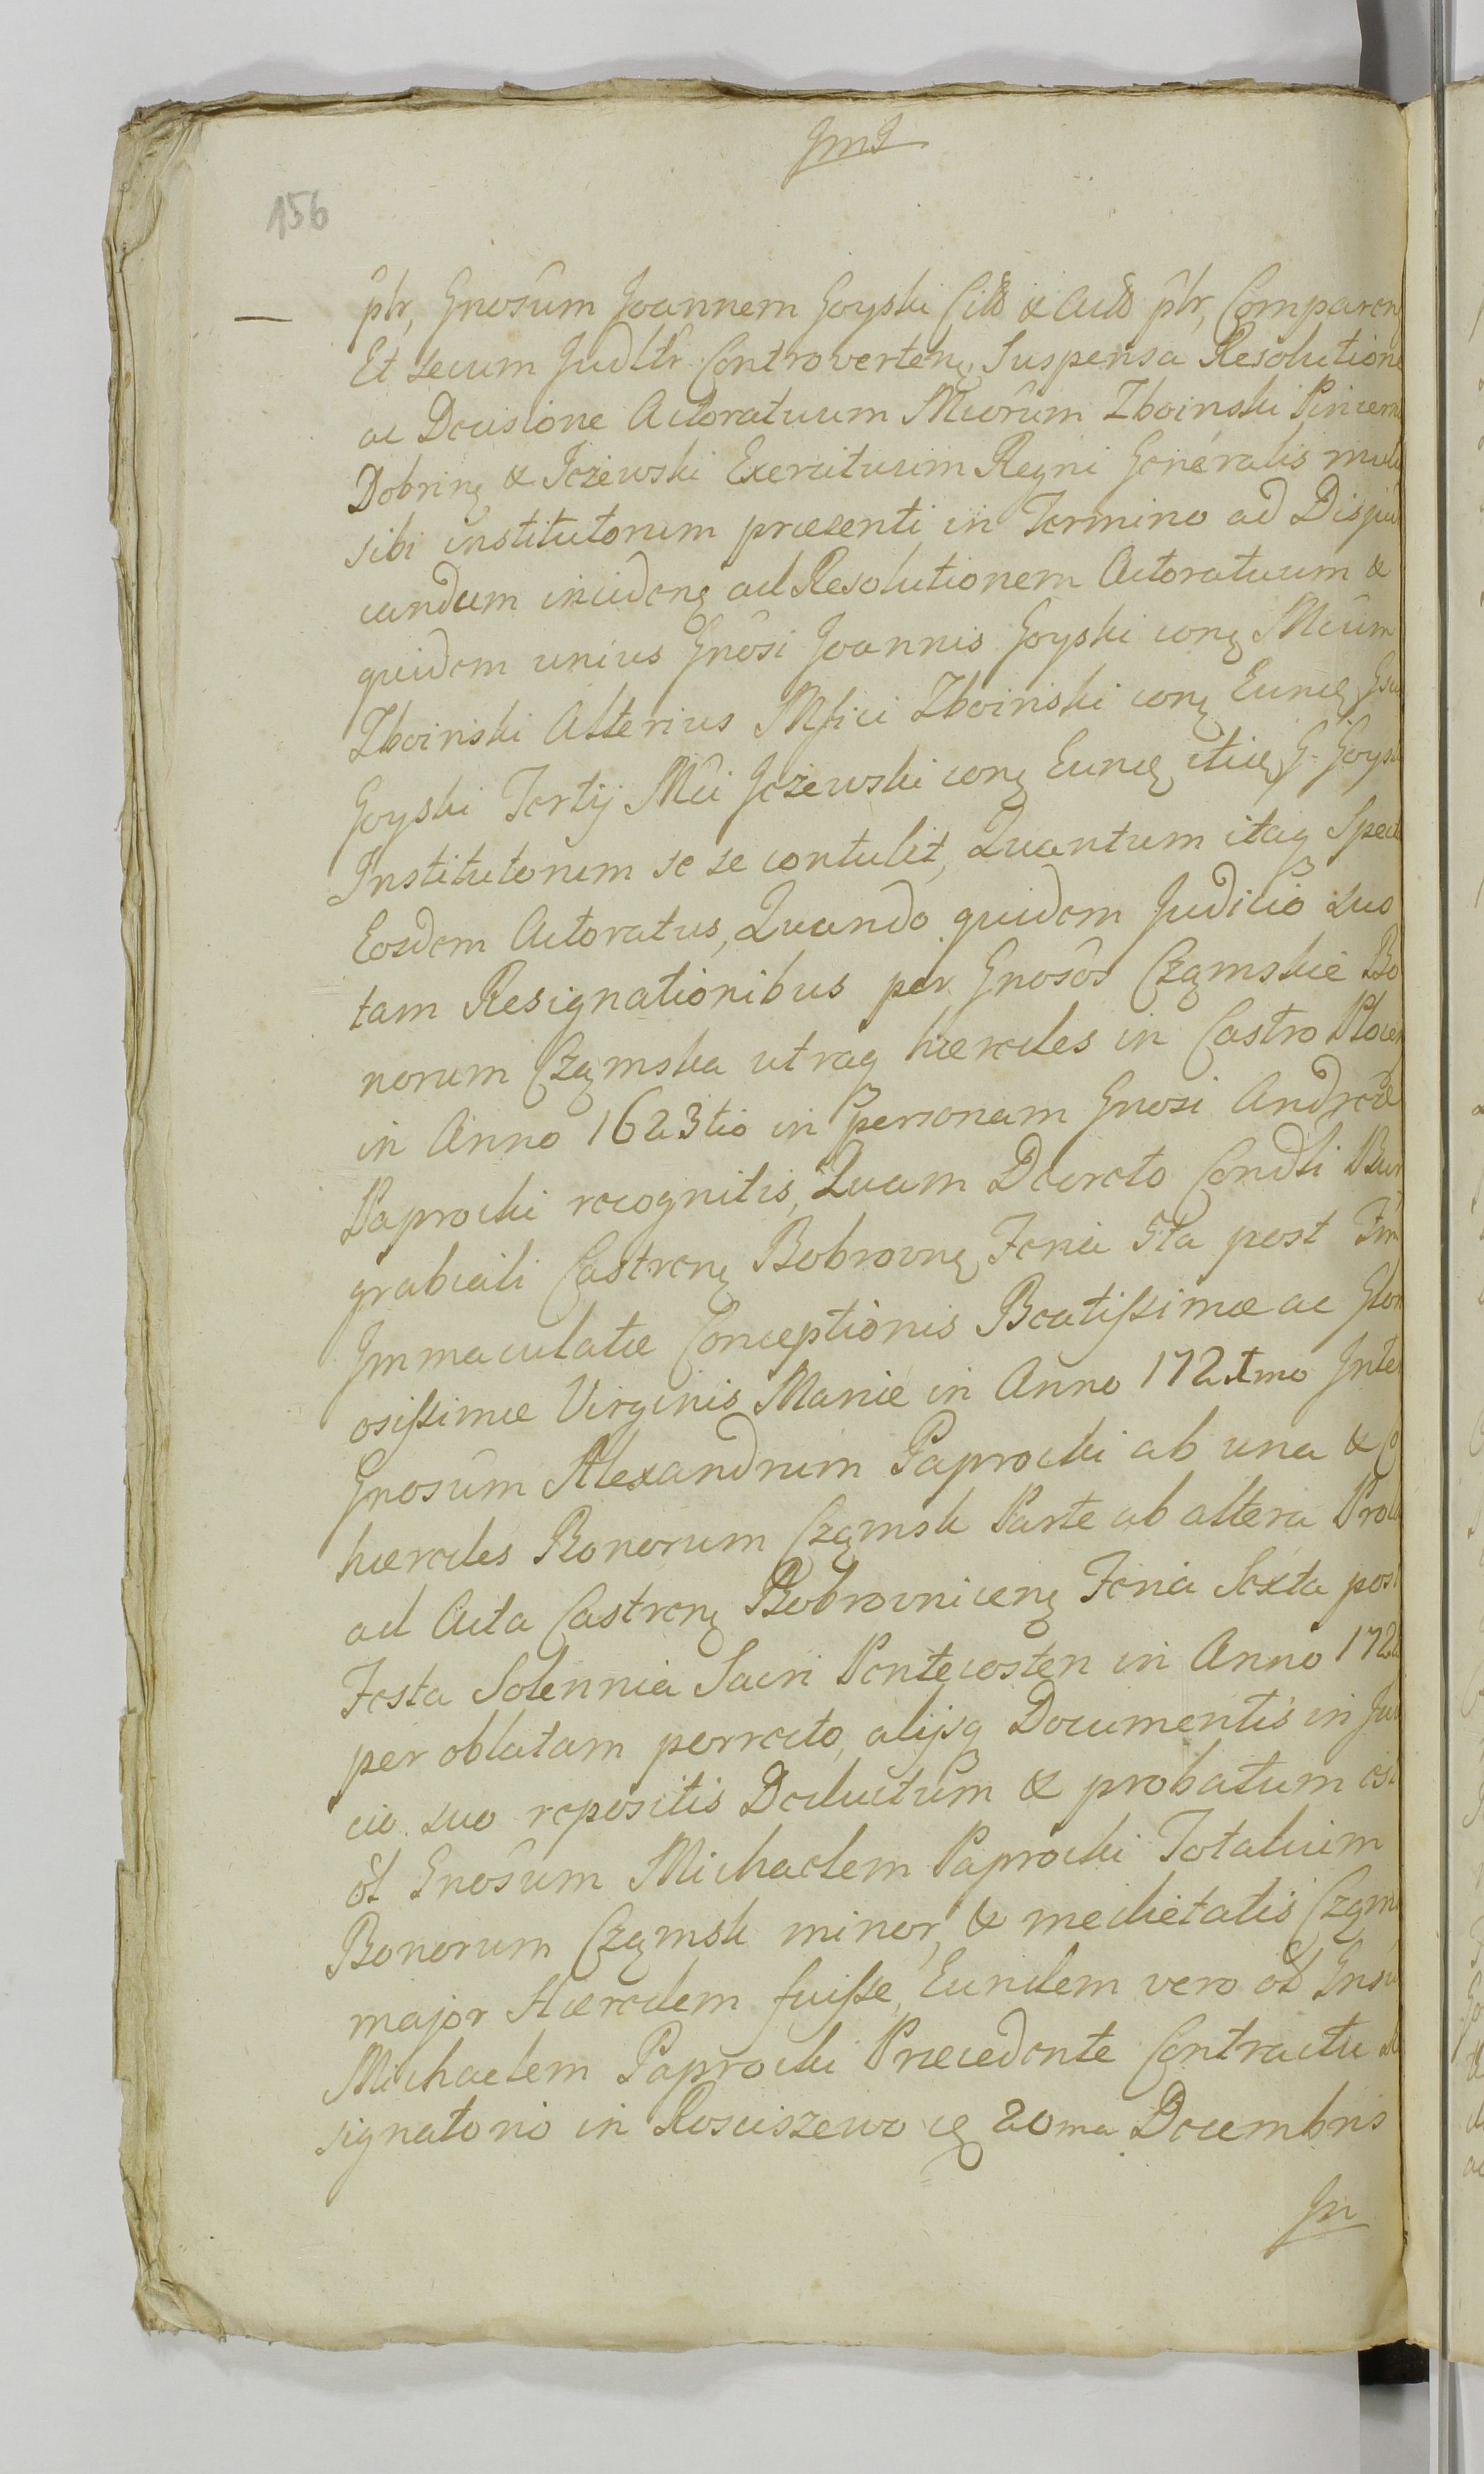 JmJ
156
— ptr, Gnosum Joannem Goyski Citt & Actt ptr, Comparen
Et secum Judltr Controverteng, Suspensa Resolutione
ac Decisione Actoratuum Mcorum Zboinski Pincern
Dobrinę & Jeżewski Exercituum Regni Generalis
sibi institutorum præsenti in Termino ad Disjudi
candum incideng ad Resolutionem Actoratuum &
quidem unius Gnosi Joannis Goyski conę Mcum
Zboinski Alterius Mfici Zboinski conę Eundę Gsu
Goyski Tertij Mci Jeżewski conę Eundę itidę G. Goysk
Institutorum se se contulit, Quantum itaq Spect
Eosdem Actoratus, Quando quidem Judicio suo
tam Resignationibus per Gnosos Czamskie Bo
norum Czamska utraq hæredes in Castro Plocen
in Anno 1623tio in Personam Gnosi Andreæ
Paprocki recognitis, Quam Decreto Condli Bur
grabiali Castrenę Bobrovnę Feria 5ta post Fm
Immaculatæ Conceptionis Beatissimæ ac Glori
osissimæ Virginis Mariæ in Anno 1721mo Inter
Gnosum Alexandrum Paprocki ab una & Co
hæredes Bonorum Czamsk Parte ab altera Prola
ad Acta Castrenę Bobrovnicenę Feria Sexta post
Festa Solennia Sacri Pentecosten in Anno 172
per oblatam porrecto, alijsq Documentis in Judi
cio suo repositis Deductum & probatum est
ol Gnosum Michaelem Paprocki Totalium
Bonorum Czamsk minor, & medietatis Czams
major Hæredem fuisse, Eundem vero ol Gnsu
Michaelem Paprocki Præcedente Contractu
signatorio in Rosciszewo 20ma Decembris
In